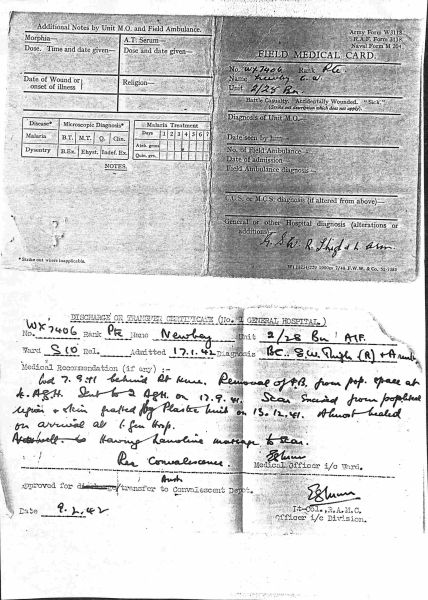 Additional Notes by Unit M.O. and Field Ambulance.
Morphia—
A.T. Serum—
Dose. Time and date given—
Dose and date given—
Date of Wound or onset of illness
Religion—
Disease*
Microscopic Diagnosis*
Malaria Treatment
Malaria
B.T. M.T. Q. Gm.
Days 1 2 3 4 5 6 7
Dysentry
B.Ex. Ehyst. Indef. Ex.
Quin. grs.
NOTES.
*Strike out where inapplicable.
Army Form W3118
R.A.F. Form
Naval Form M
FIELD MEDICAL CARD.
No. WX7406 Rank Pte
Name Newbey
Unit 2/28 Bn
Battle Casualty. Accidentally Wounded. "Sick."
(Strike out description which does not apply).
Diagnosis of Unit M.O.
Date seen by
No. of Field Ambulance—
Date of admission
Field Ambulance diagnosis—
C.C.S. or M.C.S. diagnosis (if altered from above)—
General or other Hospital diagnosis (alterations or additions)
G.S.W. R. Thigh & L. Arm.
DISCHARGE OR TRANSFER CERTIFICATE (No. 1 GENERAL HOSPITAL.)
No. WX7406 Rank Pte Name Newbey Unit 2/28 Bn AIF
Ward S10 Rel. Admitted 17.1.42 Diagnosis S.W. Thigh (R) + Arm
Medical Recommendation (if any) :-
7.9.41 behind Rt knee. Removal of F.B. from pop. space at
4 A.G.H. Sent to 2 AGH on 17.9.41. Scar excised from popliteal
region & skin grafted by Plastic Unit on 13.12.41. Almost healed
on arrival at 1 Gen Hosp.
Having lanoline massage to scar.
For Convalescence.
Medical Officer i/c Ward.
Aust
Approved for discharge/transfer to Convalescent Depot.
Date 9.2.42
Lt-Col., R.A.M.C.
Officer i/c Division.